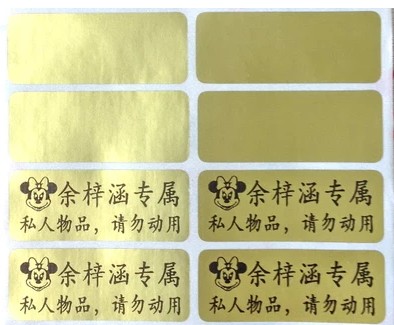 余梓涵专属
私人物品，请勿动用
余梓涵专属
私人物品，请勿动用
余梓涵专属
私人物品，请勿动用
余梓涵专属
私人物品，请勿动用